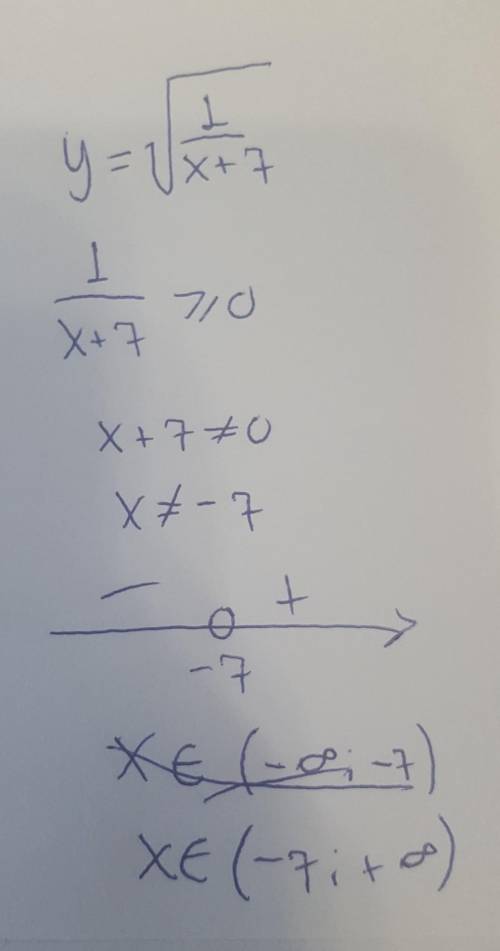 y = √(1/(x+7))
1/(x+7) ⩾ 0
x + 7 ≠ 0
x ≠ -7
− +
-7
x ∈ (-∞; -7)
x ∈ (-7; +∞)